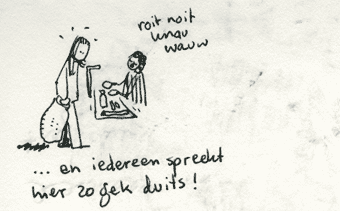 roit noit
unau
wauw
... en iedereen spreekt
hier zo gek duits!